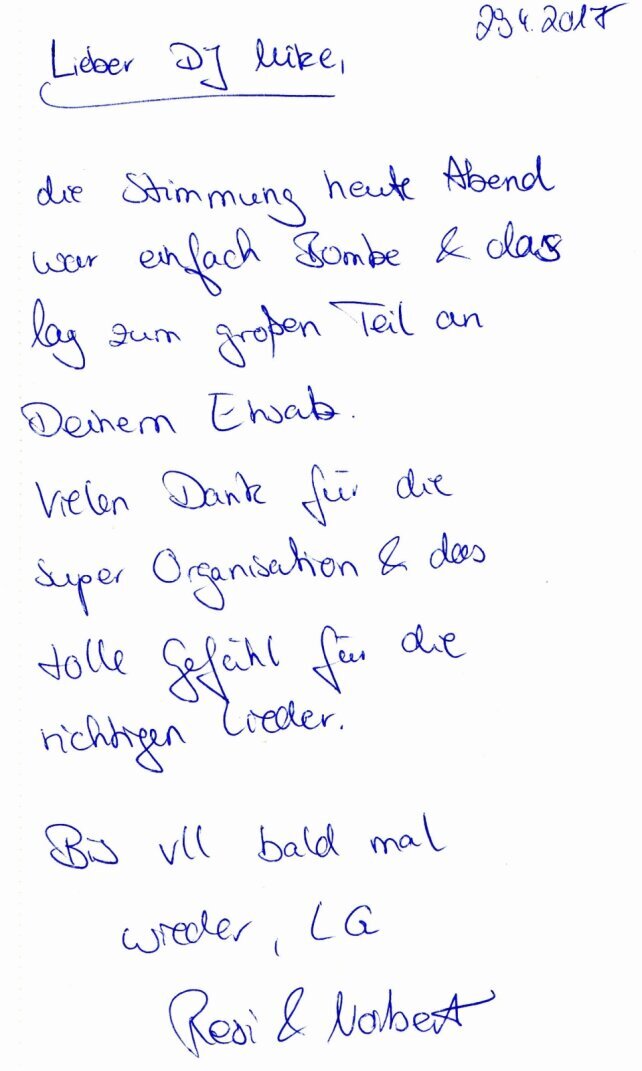 29.4.2017
Lieber DJ Mike,
die Stimmung heute Abend
war einfach Bombe & das
lag zum großen Teil an
Deinem
Vielen Dank für die
super Organisation & das
tolle Gefühl für die
richtigen Lieder.
Bis vll bald mal
wieder, LG
Resi & Norbert